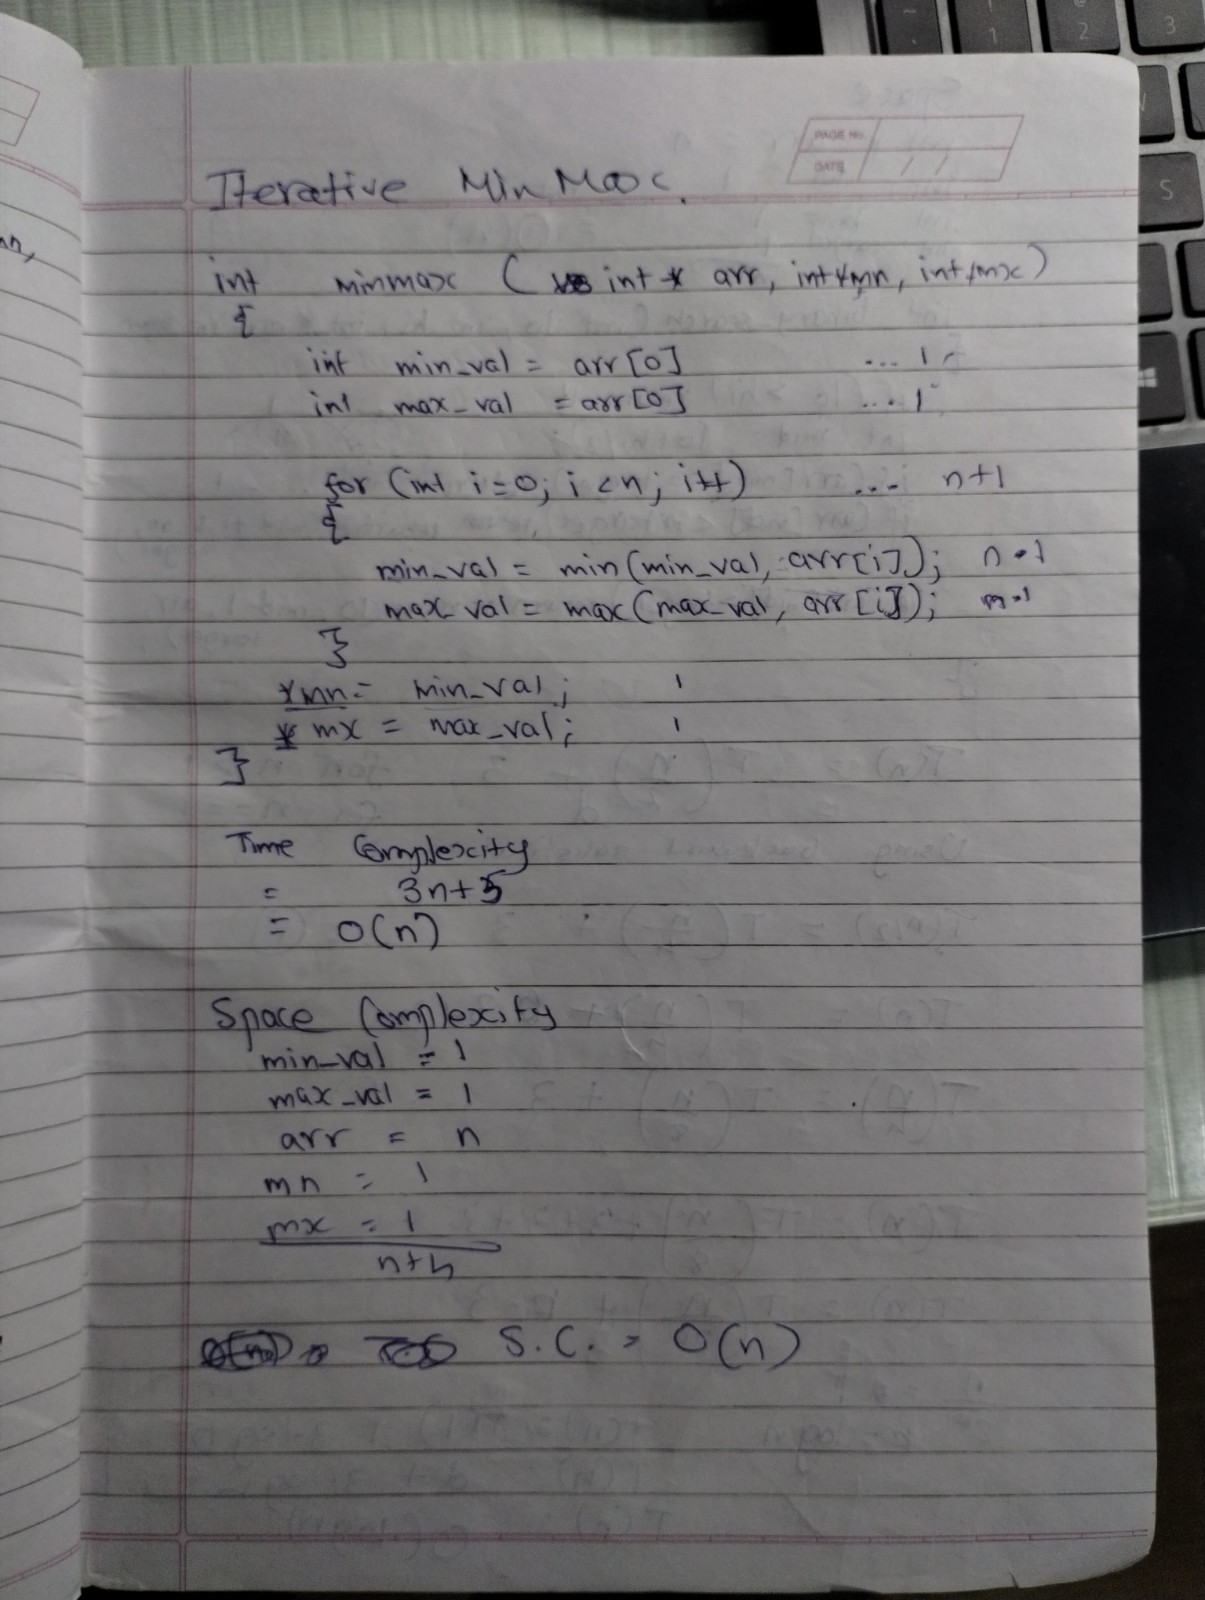 PAGE No.
DATE / /
Iterative Min Max.
int minmax ( int * arr, int *mn, int *mx)
{
int min_val = arr [0] ... 1
int max_val = arr [0] ... 1
for (int i=0; i<n; i++) ... n+1
{
min_val = min(min_val, arr[i]); n·1
max_val = max(max_val, arr[i]); n·1
}
*mn = min_val; 1
* mx = max_val; 1
}
Time Complexity
= 3n+5
= O(n)
Space Complexity
min_val = 1
max_val = 1
arr = n
mn = 1
mx = 1
S.C. = O(n)